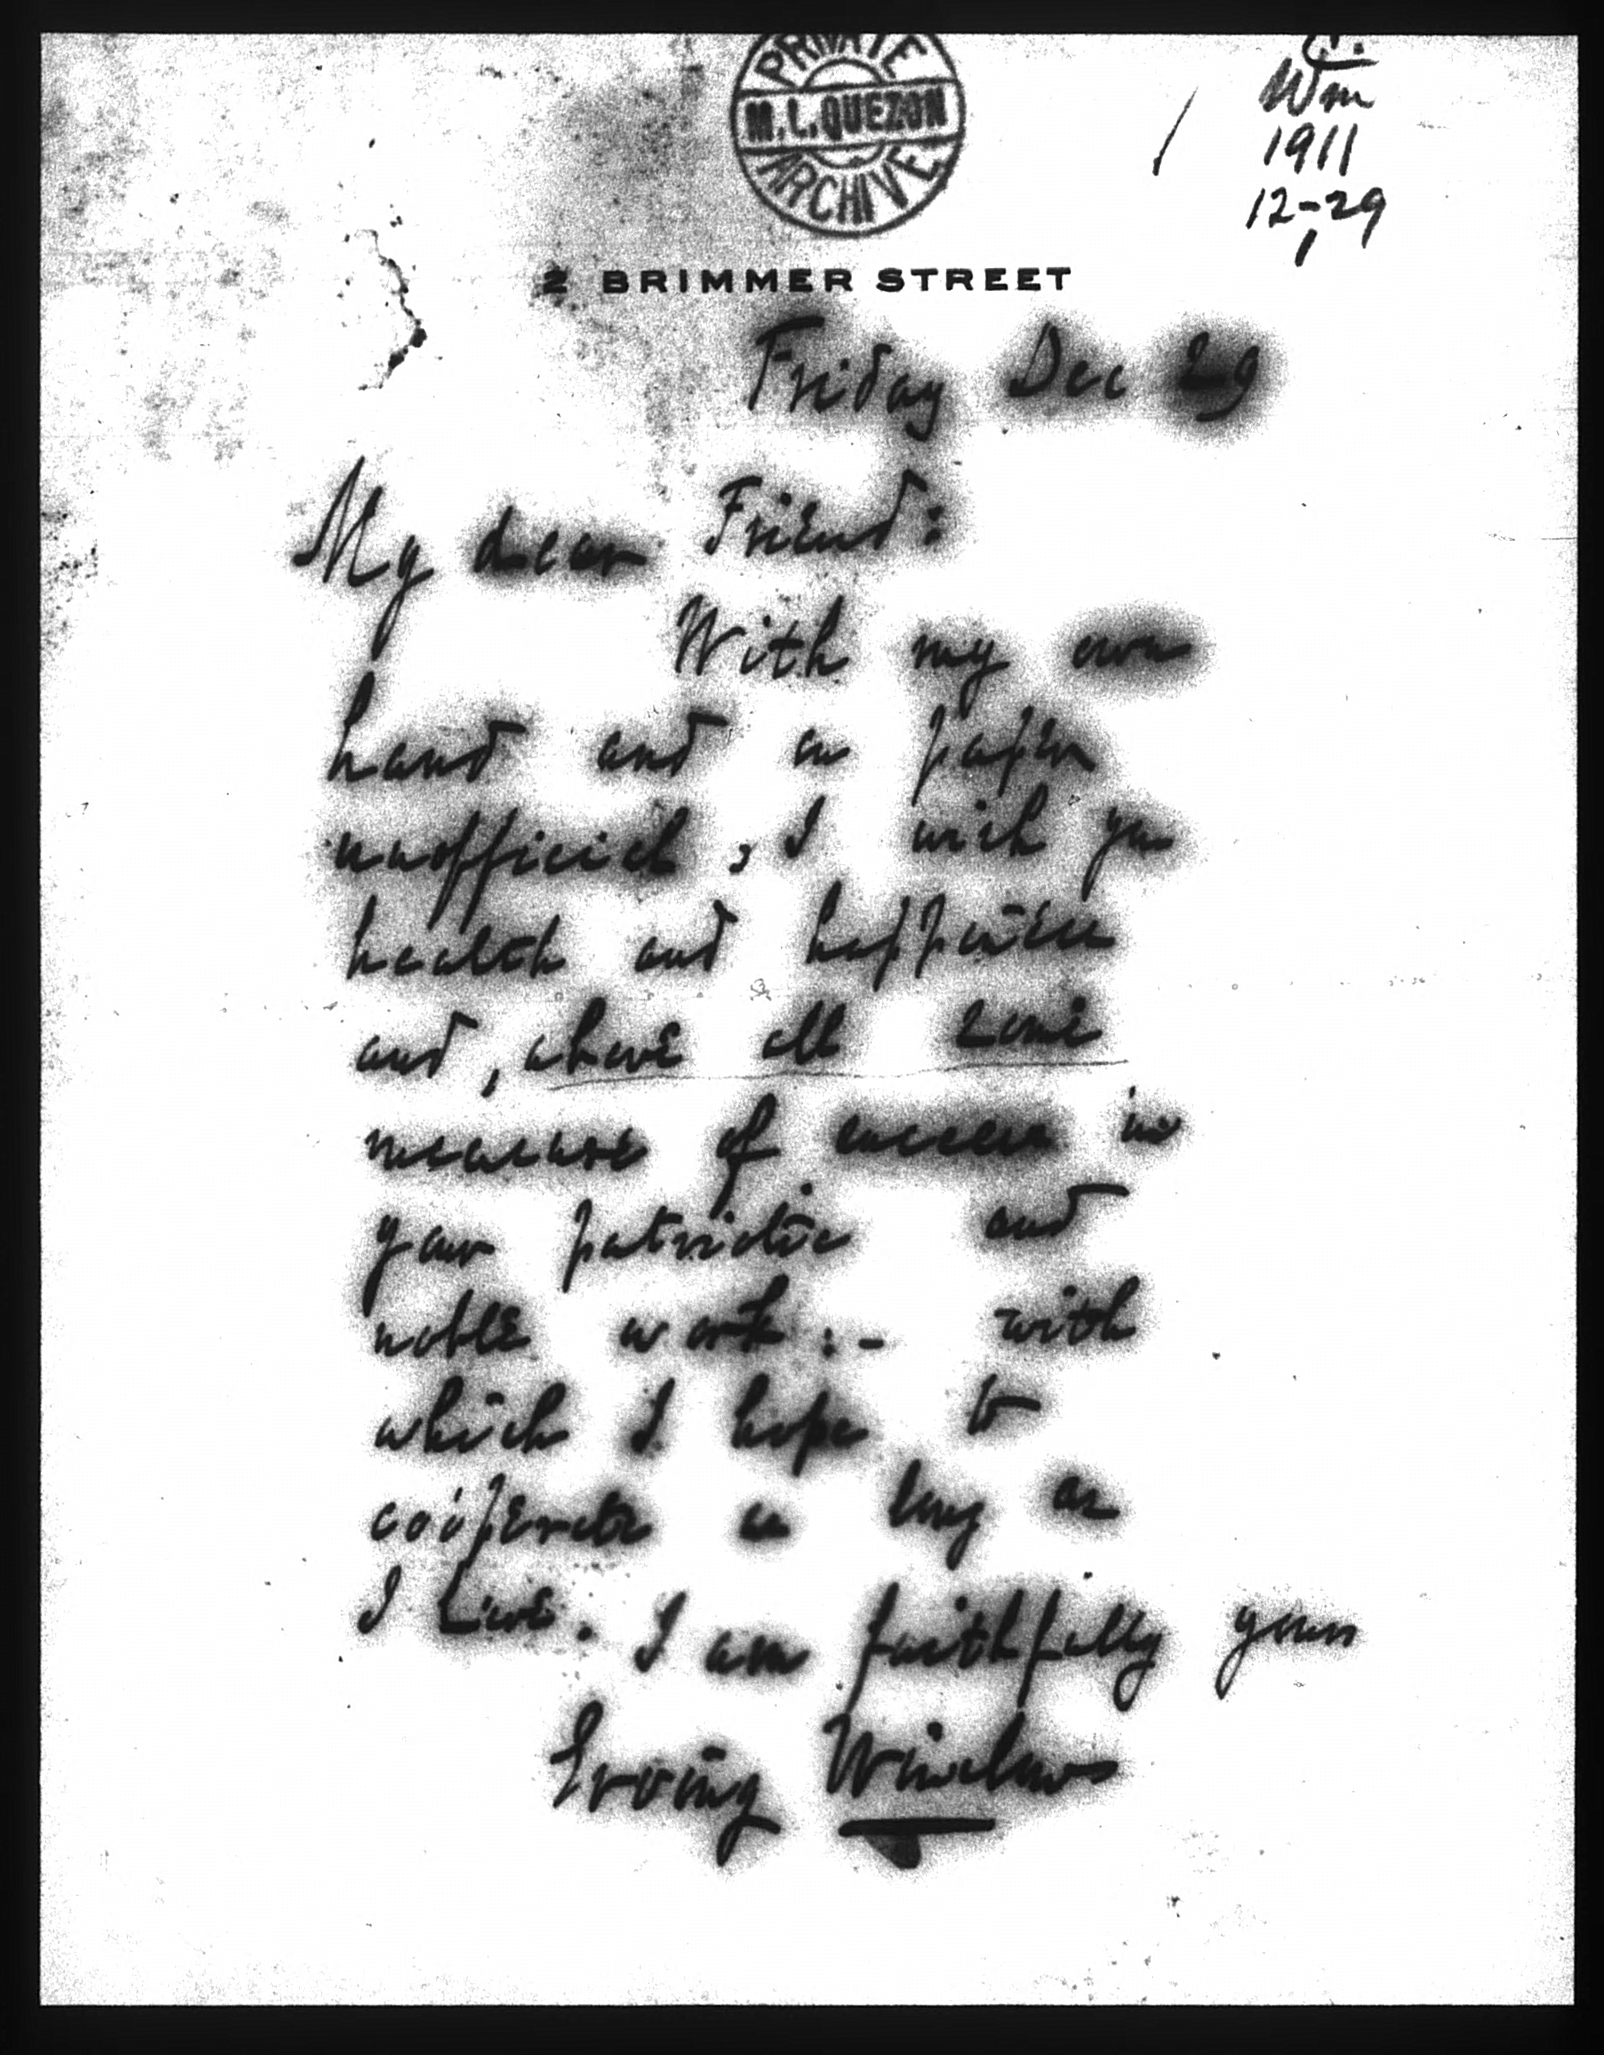 PRIVATE
M. L. QUEZON
ARCHIVE
Wm
1911
12-29
2 BRIMMER STREET
Friday Dec 29
My dear Friend:
With my own
hand and on paper
unofficial, I wish you
health and happiness
and, above all some
measure of success in
your patriotic and
noble work:- with
which I hope to
coöperate as long as
I live. I am faithfully yours
Erving Winslow